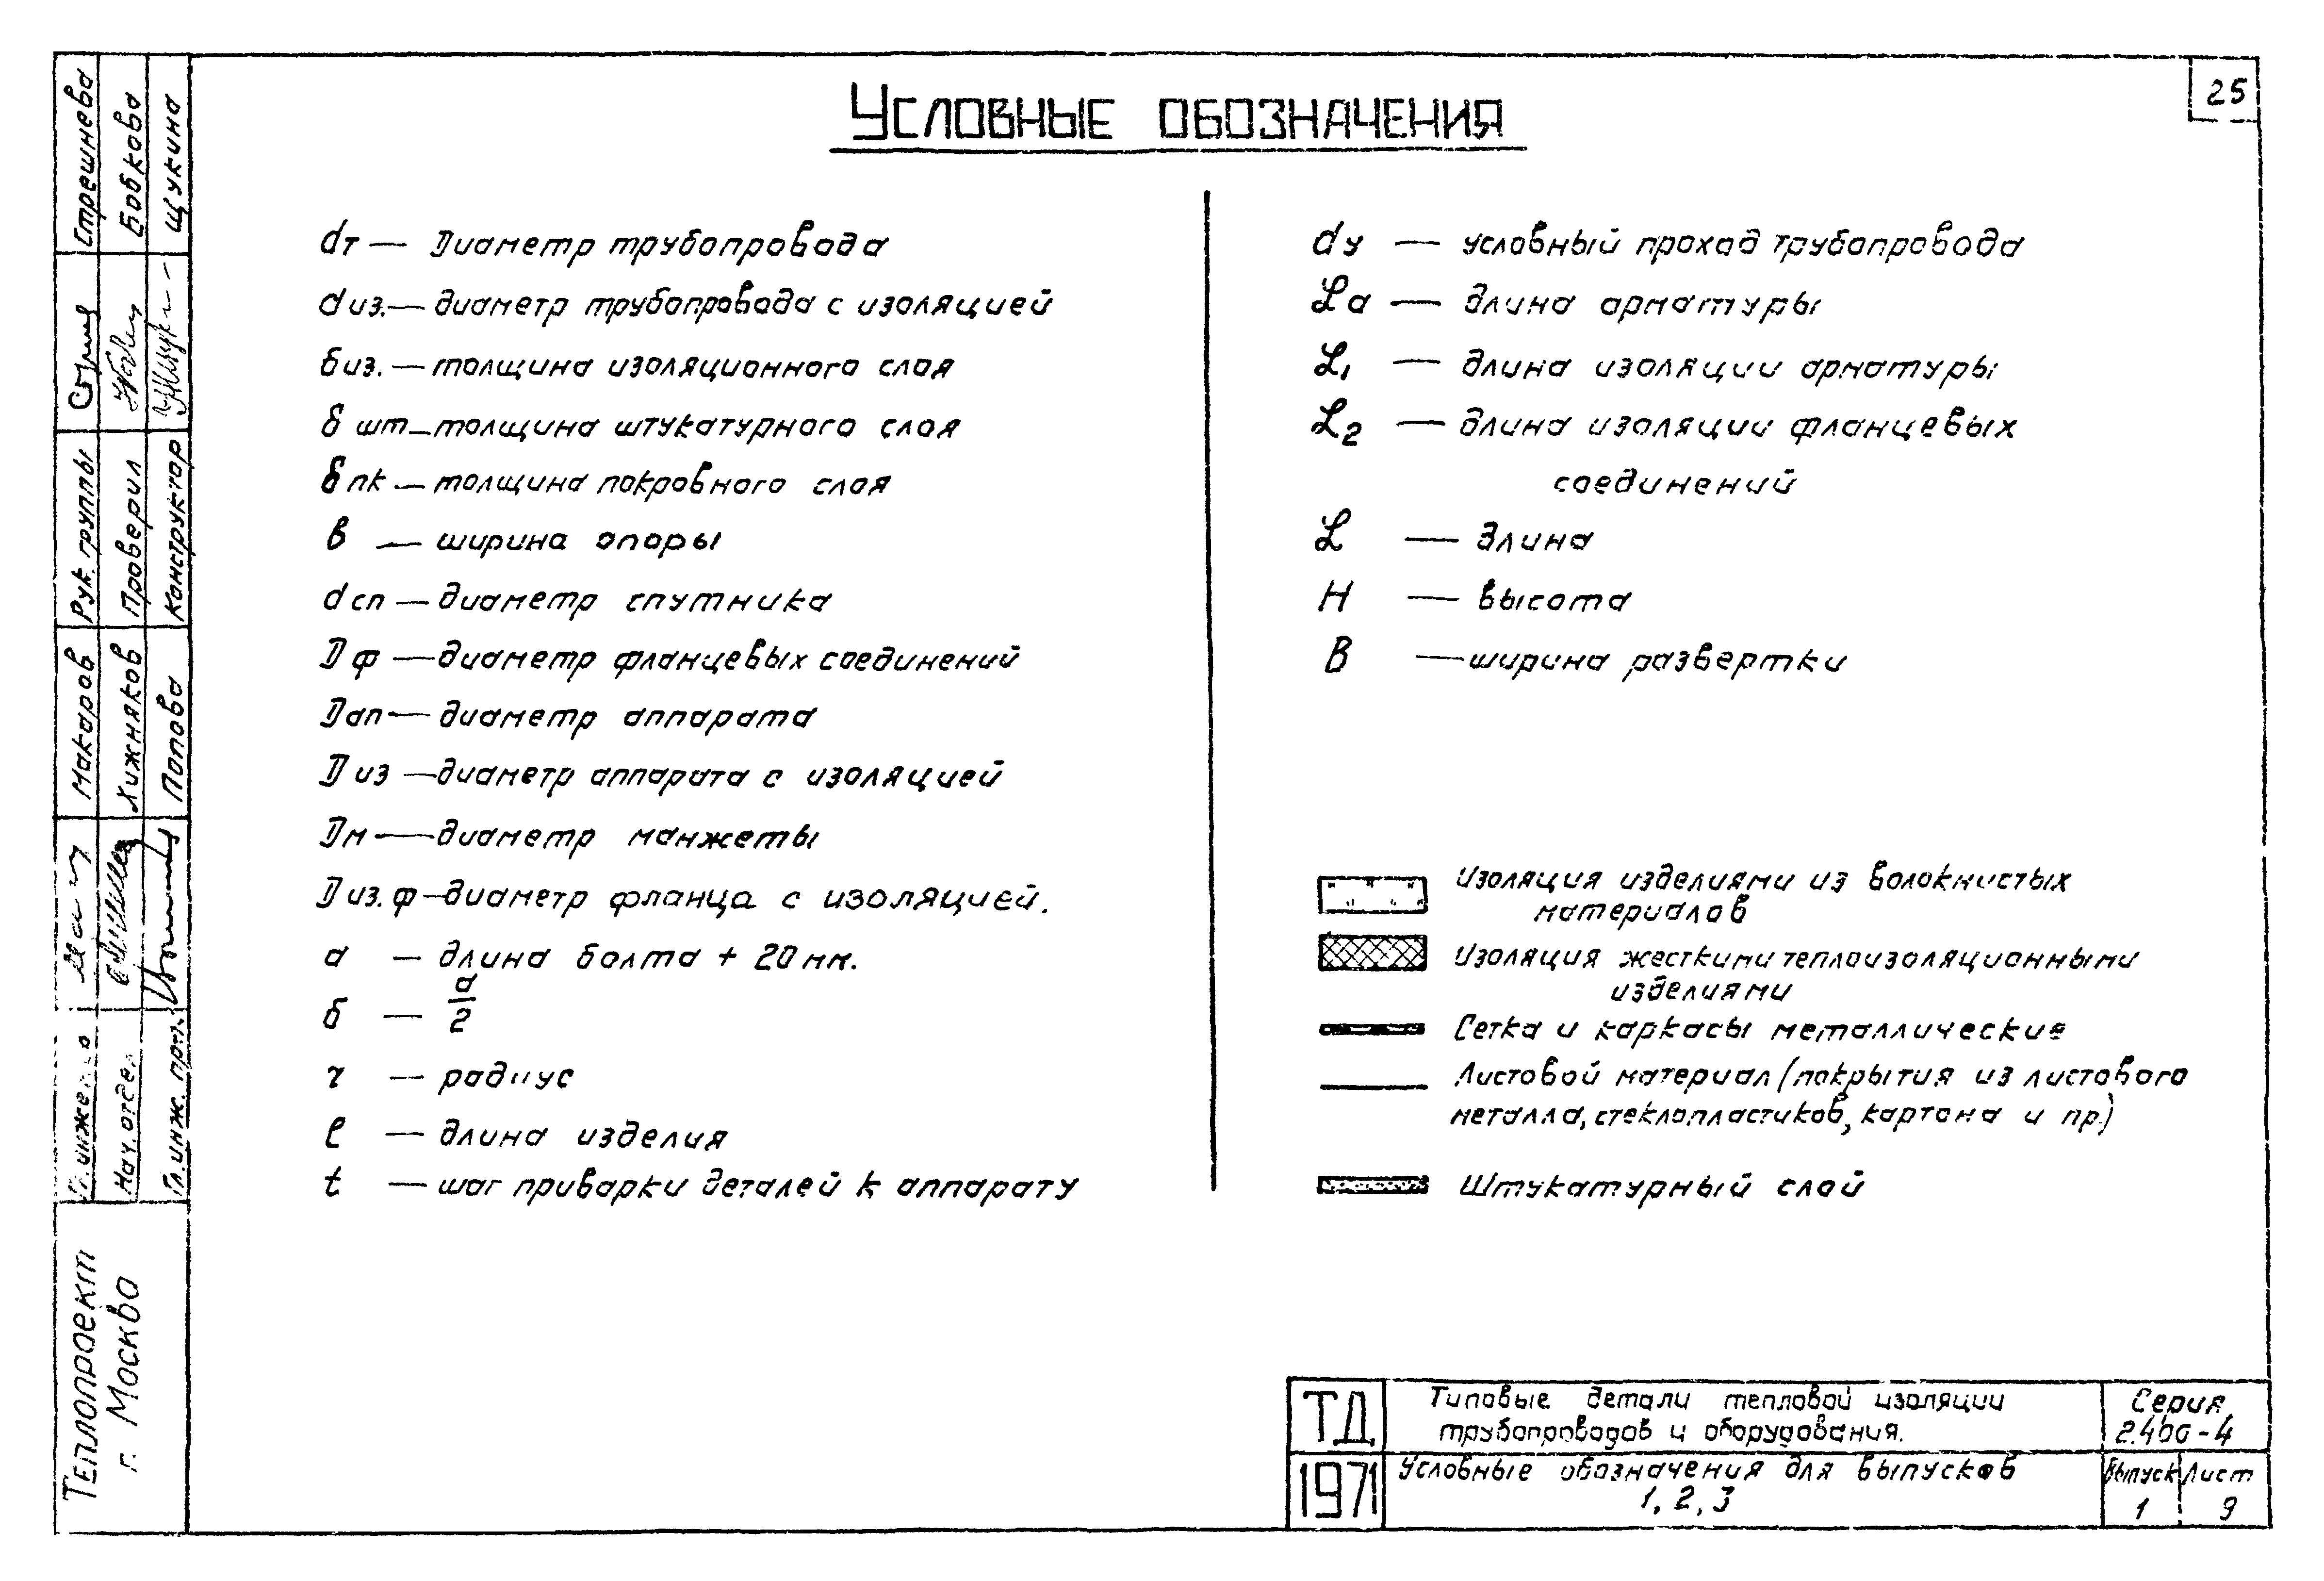 25
Условные обозначения
dт — Диаметр трубопровода
dиз. — диаметр трубопровода с изоляцией
биз. — толщина изоляционного слоя
δшт — толщина штукатурного слоя
δпк — толщина покровного слоя
в — ширина опоры
dсп — диаметр спутника
Dф — диаметр фланцевых соединений
Dап — диаметр аппарата
Dиз — диаметр аппарата с изоляцией
Dм — диаметр манжеты
Dиз.ф — диаметр фланца с изоляцией.
а — длина болта + 20 мм.
б — а/2
r — радиус
ℓ — длина изделия
t — шаг приварки деталей к аппарату
dу — условный проход трубопровода
Lа — длина арматуры
L1 — длина изоляции арматуры
L2 — длина изоляции фланцевых
соединений
L — длина
H — высота
B — ширина развертки
Изоляция изделиями из волокнистых
материалов
Изоляция жесткими теплоизоляционными
изделиями
Сетка и каркасы металлические
Листовой материал (покрытия из листового
металла, стеклопластиков, картона и пр.)
Штукатурный слой
Стрешнева
Бобкова
Щукина
Рук. группы
Проверил
Конструктор
Макаров
Хижняков
Попова
Нач. отдел
Гл. инж. пр.
Теплопроект
г. Москва
ТД
1971
Типовые детали тепловой изоляции
трубопроводов и оборудования.
Серия
2.400-4
Условные обозначения для выпусков
1, 2, 3
Выпуск
1
Лист
9